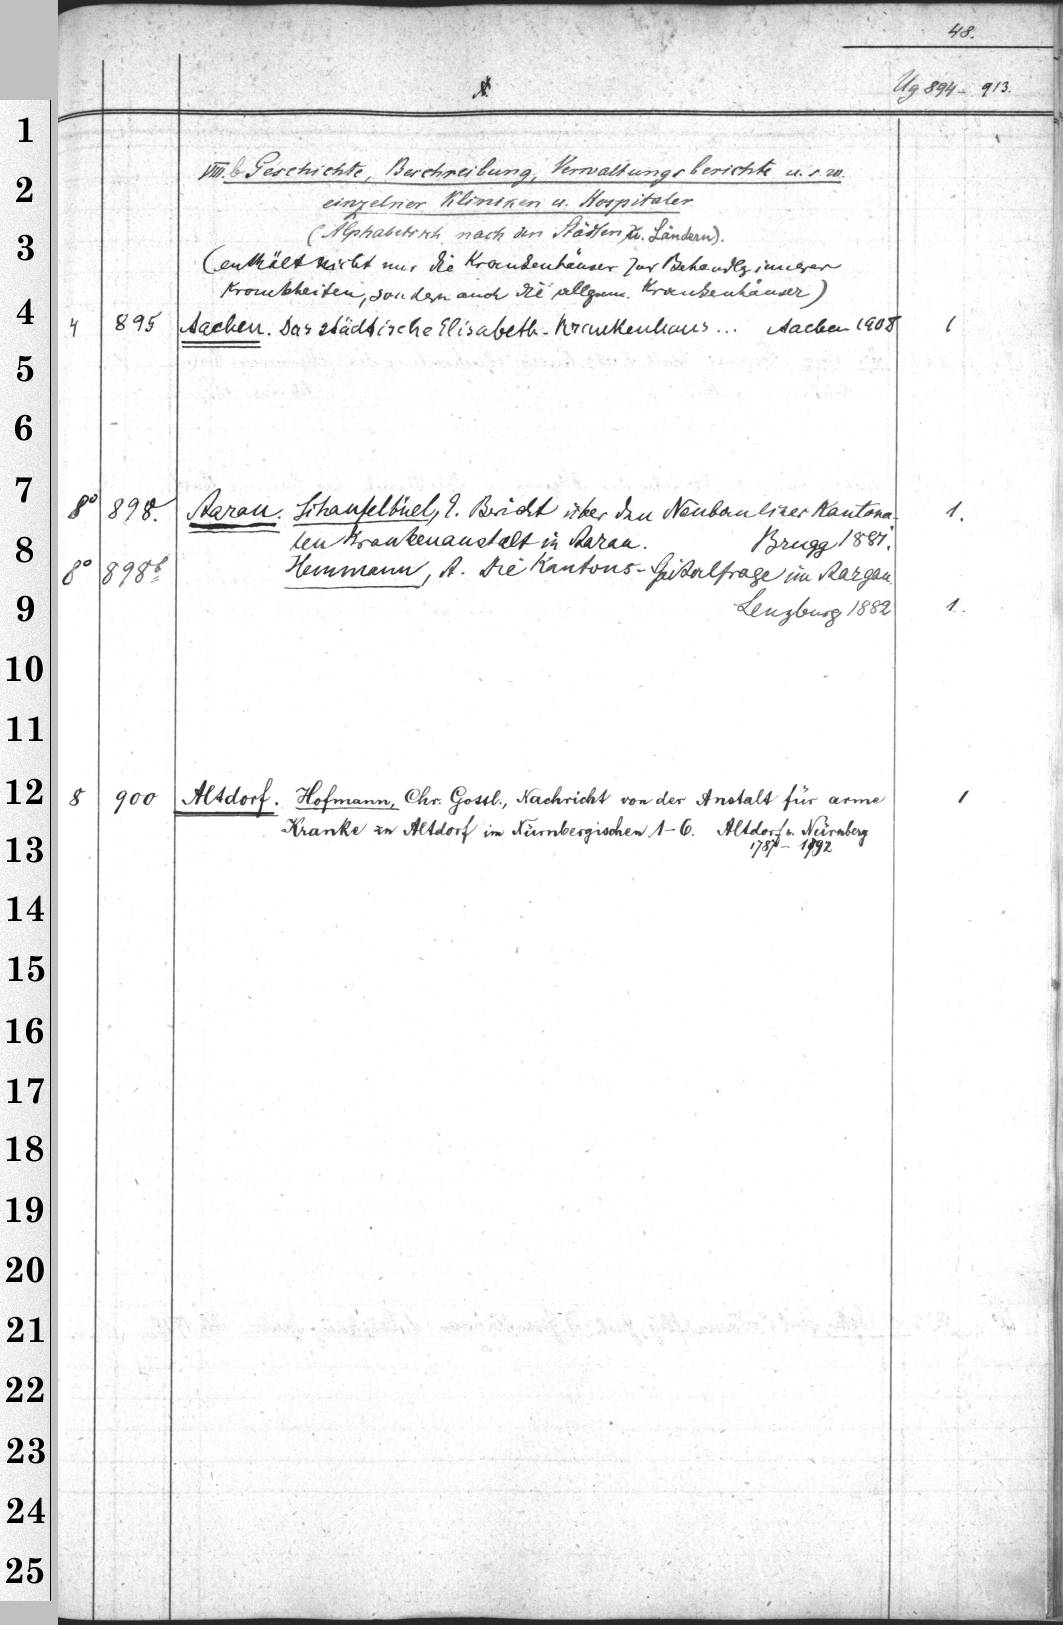 48.
Ug 894 - 913.
1
VIII.b Geschichte, Beschreibung, Verwaltungsberichte u.s.w.
2
einzelner Kliniken u. Hospitäler
(Alphabetisch nach den Städten u. Ländern).
3
(enthält nicht nur die Krankenhäuser zur Behandlg innerer
Krankheiten, sondern auch die allgem. Krankenhäuser)
4
4 895 Aachen. Das städtische Elisabeth-Krankenhaus ... Aachen 1908 1
5
6
7
8° 898. Aarau. Schaufelbüel, E. Bericht über den Neubau einer Kantona-
len Krankenanstalt in Aarau. Brugg 1881. 1.
8
8° 898b Hemmann, A. Die Kantons-Spitalfrage im Aargau.
9
Lenzburg 1882 1.
10
11
12
8 900 Altdorf. Hofmann, Chr. Gottl., Nachricht von der Anstalt für arme 1
Kranke zu Altdorf im Nürnbergischen 1-6. Altdorf u. Nürnberg
13
1787 - 1792
14
15
16
17
18
19
20
21
22
23
24
25